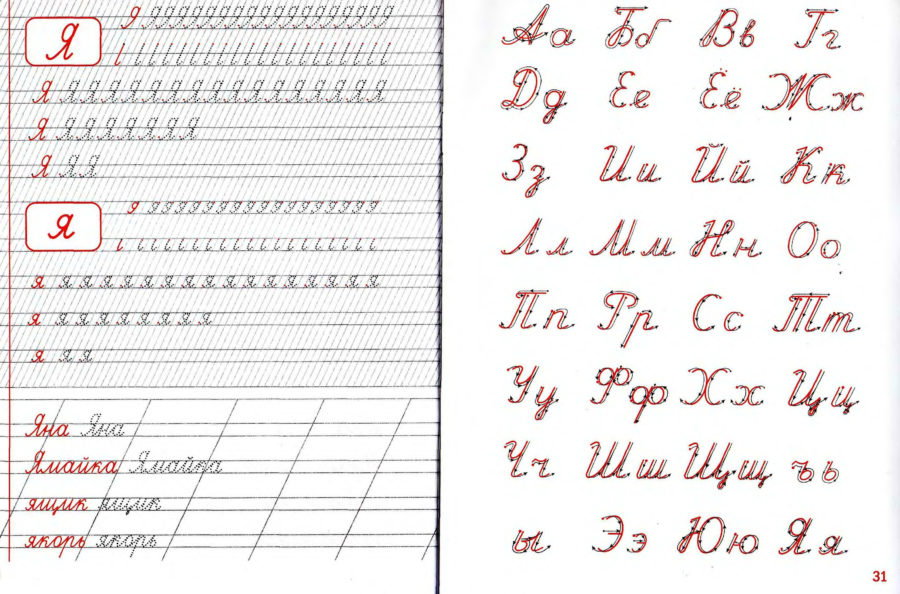 Я
Я Я Я Я Я Я Я Я Я Я Я Я Я Я Я Я
Я Я Я Я Я Я Я Я
Я Я Я
я
я я я я я я я я я я я я я я
я я я я я я я я я
я я я
Яна Яна
Ямайка Ямайка
ящик ящик
якорь якорь
Аа Бб Вв Гг
Дд Ее Ёё Жж
Зз Ии Йй Кк
Лл Мм Нн Оо
Пп Рр Сс Тт
Уу Фф Хх Цц
Чч Шш Щщ ъь
ы Ээ Юю Яя
31